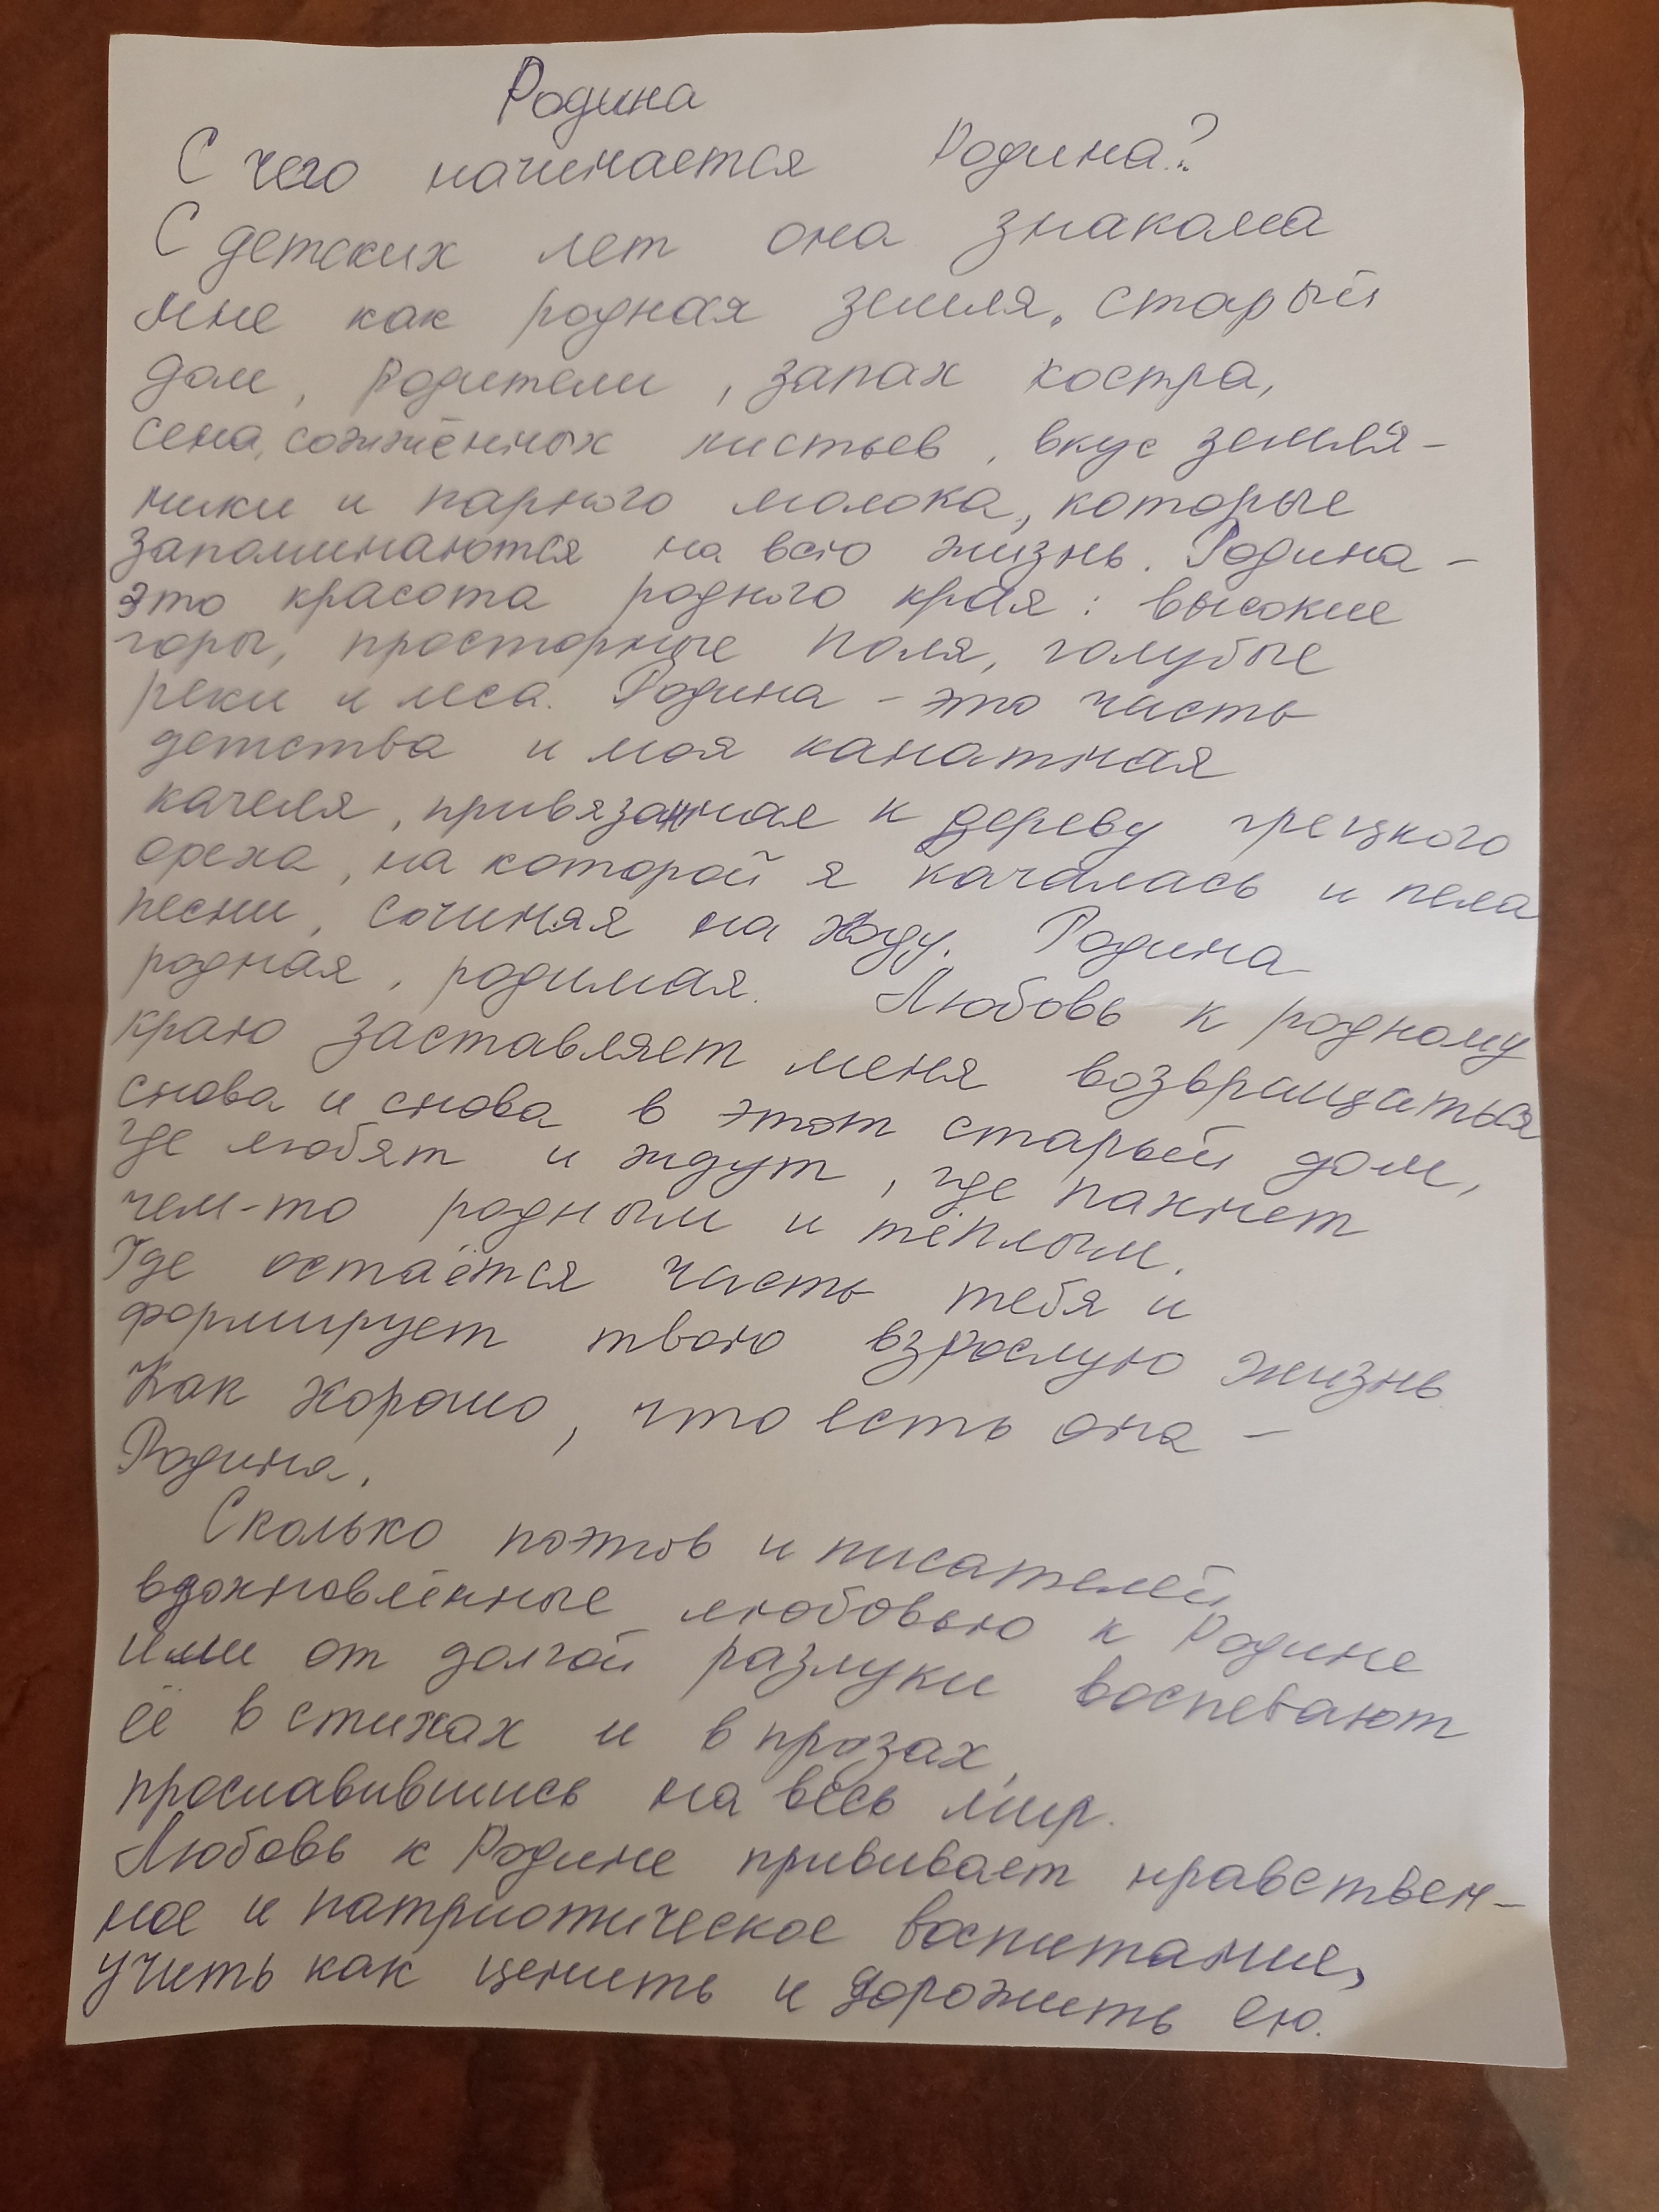 Родина
С чего начинается Родина?
С детских лет она знакома
мне как родная земля, старый
дом, родители, запах костра,
сена, сожжённых листьев, вкус земля-
ники и парного молока, которые
запоминаются на всю жизнь. Родина -
это красота родного края: высокие
горы, просторные поля, голубые
реки и леса. Родина - это часть
детства и моя канатная
качеля, привязанная к дереву грецкого
ореха, на которой я качалась и пела
песни, сочиняя на ходу. Родина
родная, родимая. Любовь к родному
краю заставляет меня возвращаться
снова и снова в этот старый дом,
где любят и ждут, где пахнет
чем-то родным и тёплым.
Где остаётся часть тебя и
формирует твою взрослую жизнь
Как хорошо, что есть она -
Родина.
Сколько поэтов и писателей,
вдохновлённые любовью к Родине
или от долгой разлуки воспевают
её в стихах и в прозах,
прославившись на весь мир.
Любовь к Родине прививает нравствен-
ное и патриотическое воспитание,
учить как ценить и дорожить ею.